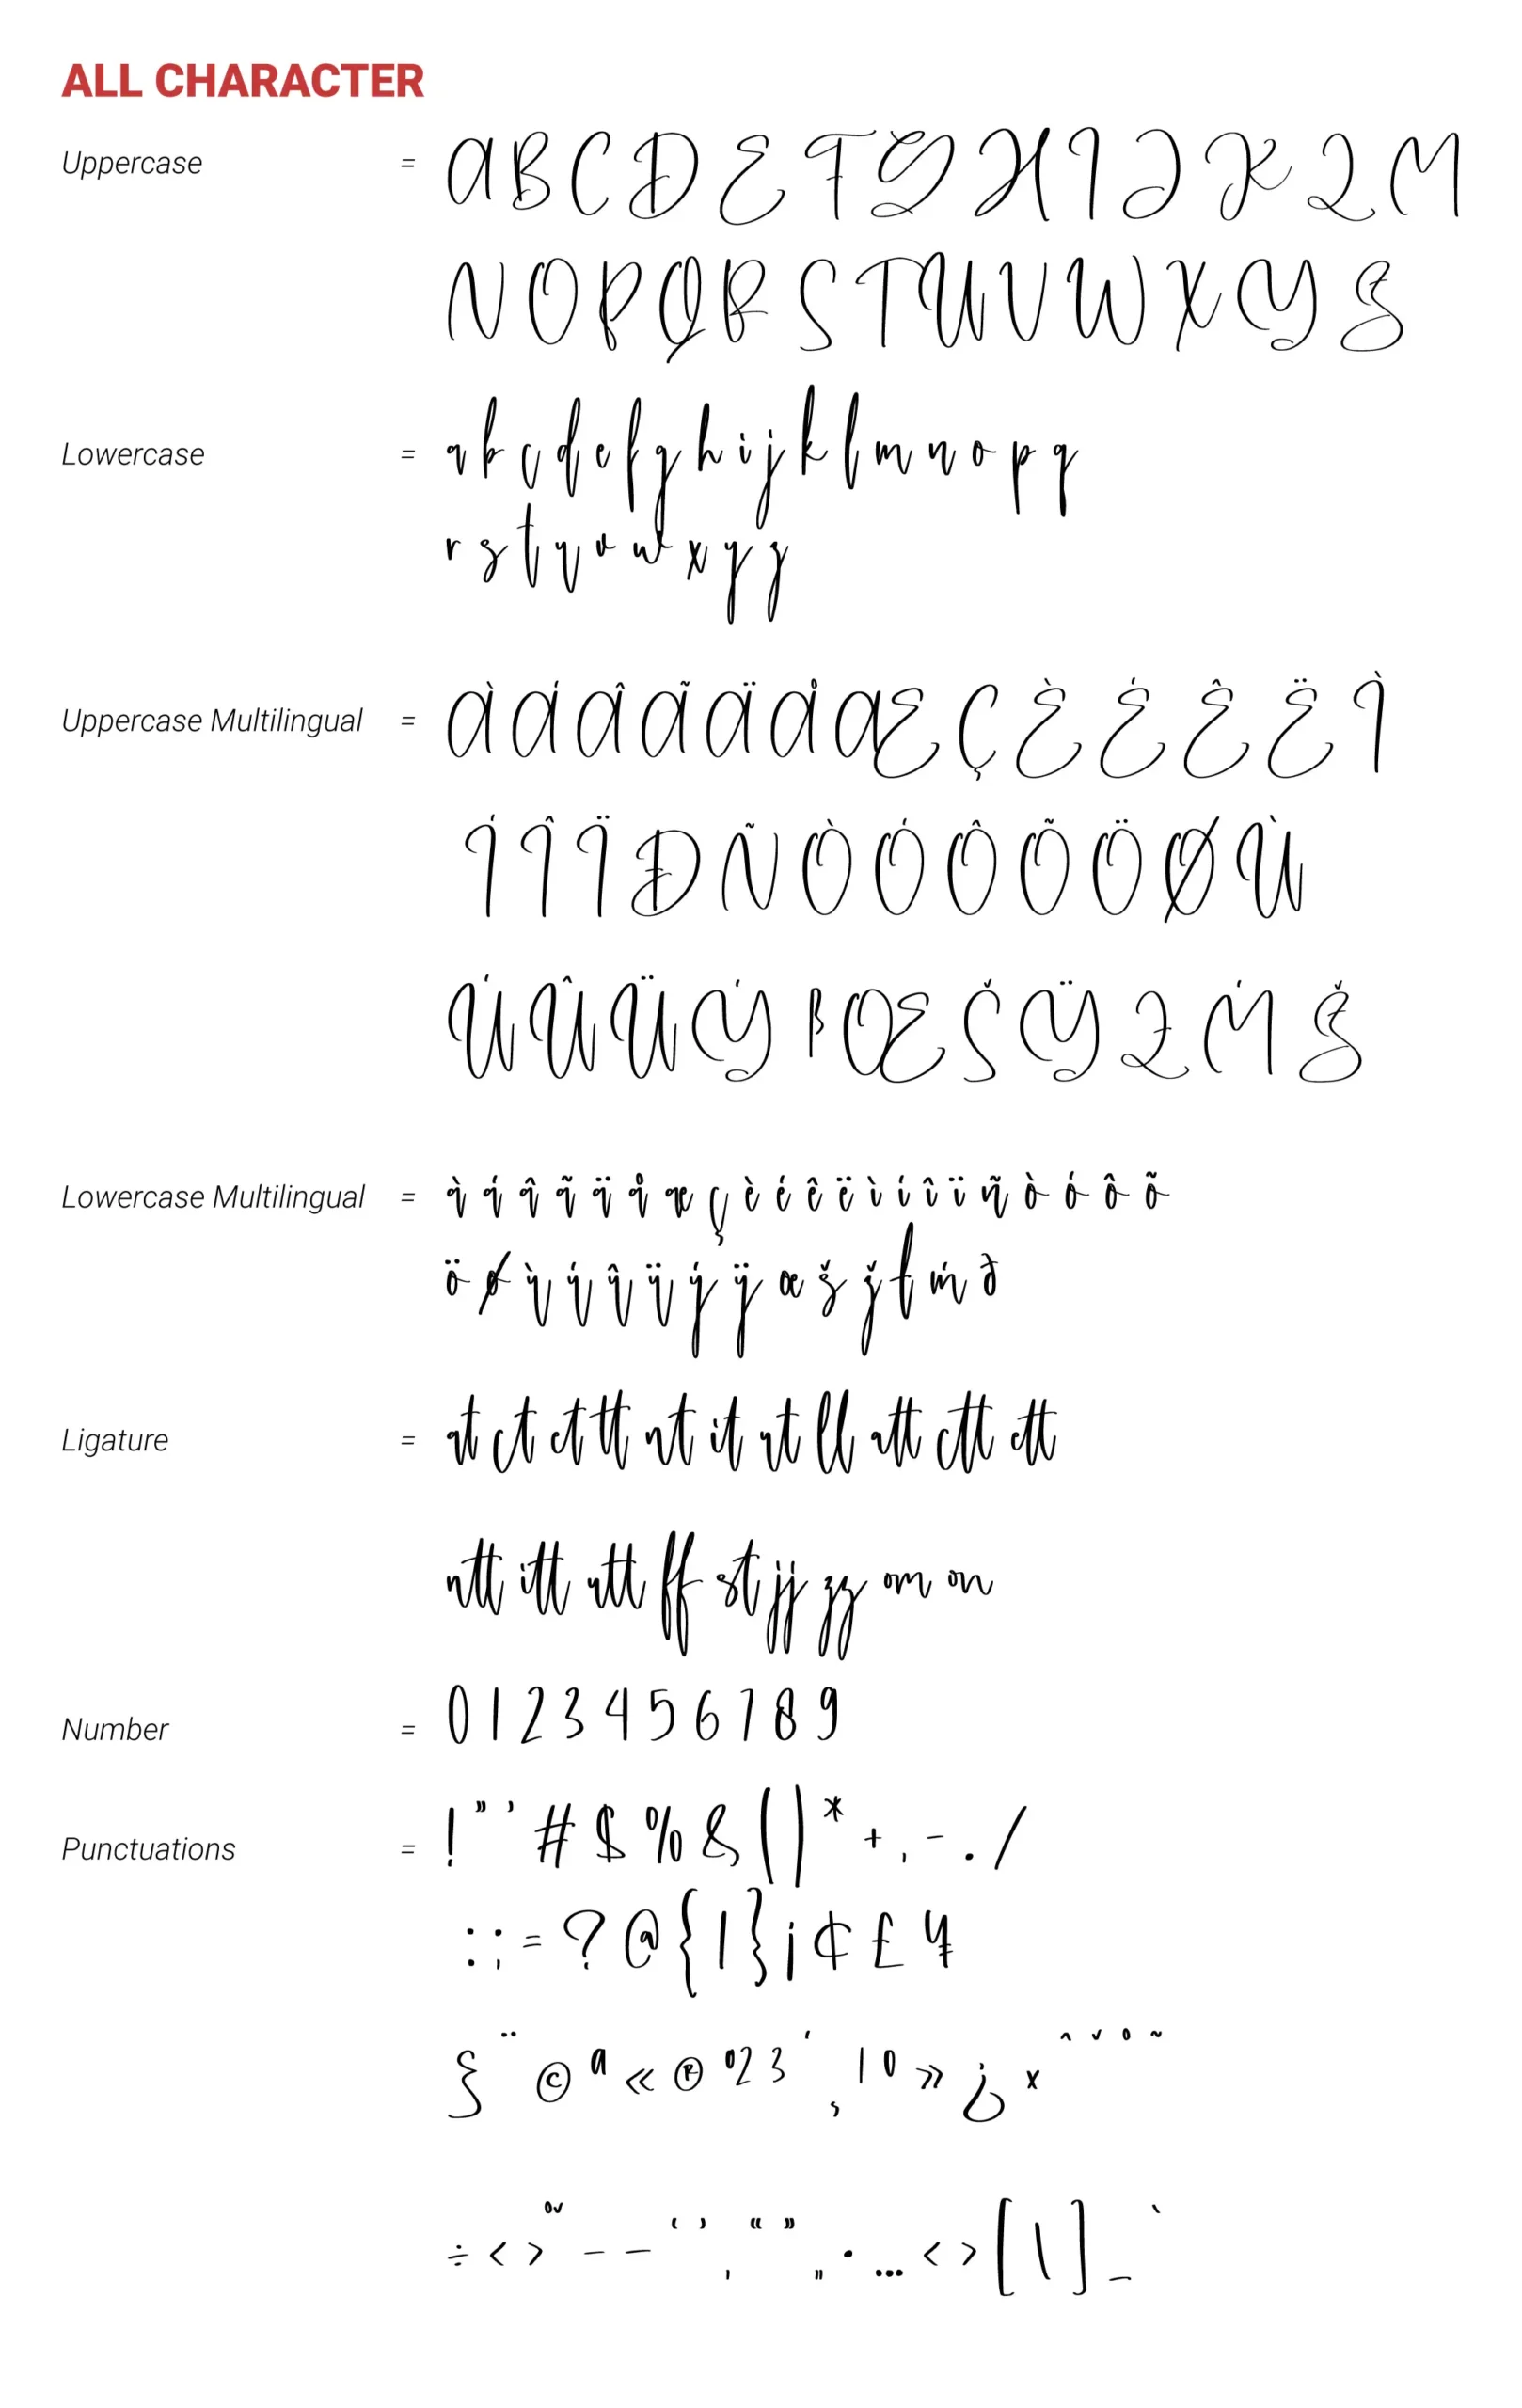 ALL CHARACTER
Uppercase = A B C D E F G H I J K L M
N O P Q R S T U V W X Y Z
Lowercase = a b c d e f g h i j k l m n o p q
r s t u v w x y z
Uppercase Multilingual = À Á Â Ã Ä Å Æ Ç È É Ê Ë Ì
Í Î Ï Ð Ñ Ò Ó Ô Õ Ö Ø Ù
Ú Û Ü Ý Þ Œ Š Ÿ Ł Ḿ Ž
Lowercase Multilingual = à á â ã ä å æ ç è é ê ë ì í î ï ñ ò ó ô õ
ö ø ù ú û ü ý ÿ œ š ž ł ḿ ð
Ligature = at ct et tt nt it ut ll att ctt ett
ntt itt utt ff st jj zz om on
Number = 0 1 2 3 4 5 6 7 8 9
Punctuations = ! " ' # $ % & ( ) * + , - . /
: ; = ? @ { | } ¡ ¢ £ ¥
§ ¨ © ª « ® ° 2 3 ´ ¸ 1 º » ¿ × ˆ ˇ ˚ ˜
÷ < > – — ‘ ’ ‚ “ ” „ • … ‹ › [ \ ] _ `